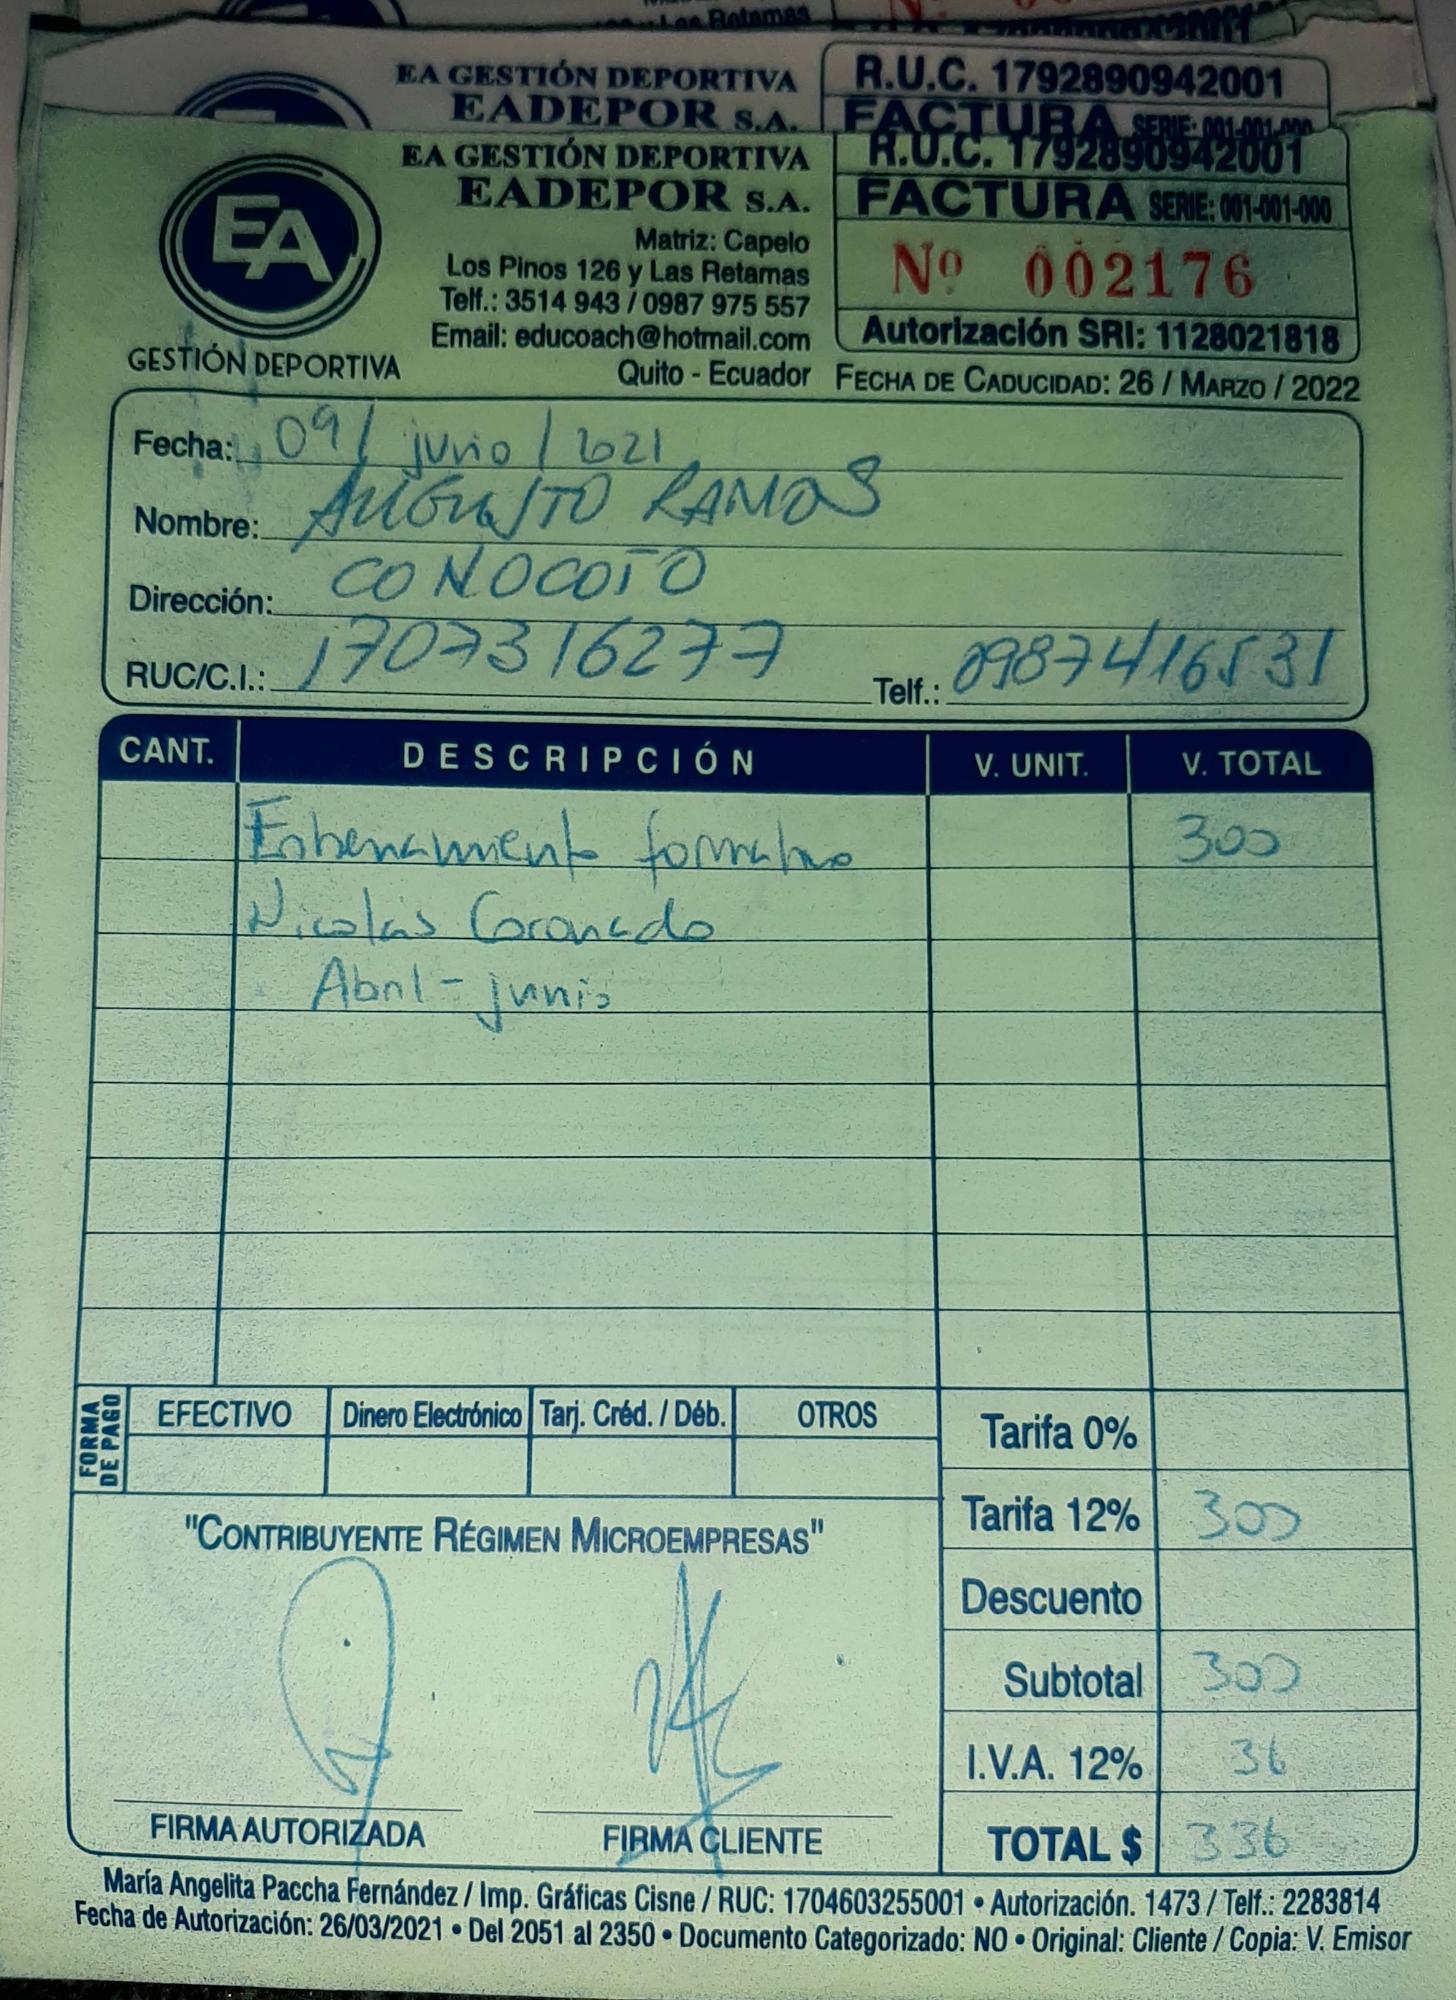 y Las Retamas
EA GESTIÓN DEPORTIVA
EADEPOR S.A.
R.U.C. 1792890942001
FACTURA SERIE: 001-001-000
EA
GESTIÓN DEPORTIVA
EA GESTIÓN DEPORTIVA
EADEPOR S.A.
Matriz: Capelo
Los Pinos 126 y Las Retamas
Telf.: 3514 943 / 0987 975 557
Email: educoach@hotmail.com
Quito - Ecuador
R.U.C. 1792890942001
FACTURA SERIE: 001-001-000
Nº 002176
Autorización SRI: 1128021818
FECHA DE CADUCIDAD: 26 / MARZO / 2022
Fecha: 09/ junio / 2021
Nombre: AUGUSTO RAMOS
Dirección: CONOCOTO
RUC/C.I.: 1707316277 Telf.: 0987416531
CANT. DESCRIPCIÓN V. UNIT. V. TOTAL
Entrenamiento formativo 300
Nicolás Coronado
Abril - junio
FORMA DE PAGO
EFECTIVO Dinero Electrónico Tarj. Créd. / Déb. OTROS
Tarifa 0%
Tarifa 12% 300
Descuento
Subtotal 300
I.V.A. 12% 36
TOTAL $ 336
"CONTRIBUYENTE RÉGIMEN MICROEMPRESAS"
FIRMA AUTORIZADA FIRMA CLIENTE
María Angelita Paccha Fernández / Imp. Gráficas Cisne / RUC: 1704603255001 • Autorización. 1473 / Telf.: 2283814
Fecha de Autorización: 26/03/2021 • Del 2051 al 2350 • Documento Categorizado: NO • Original: Cliente / Copia: V. Emisor